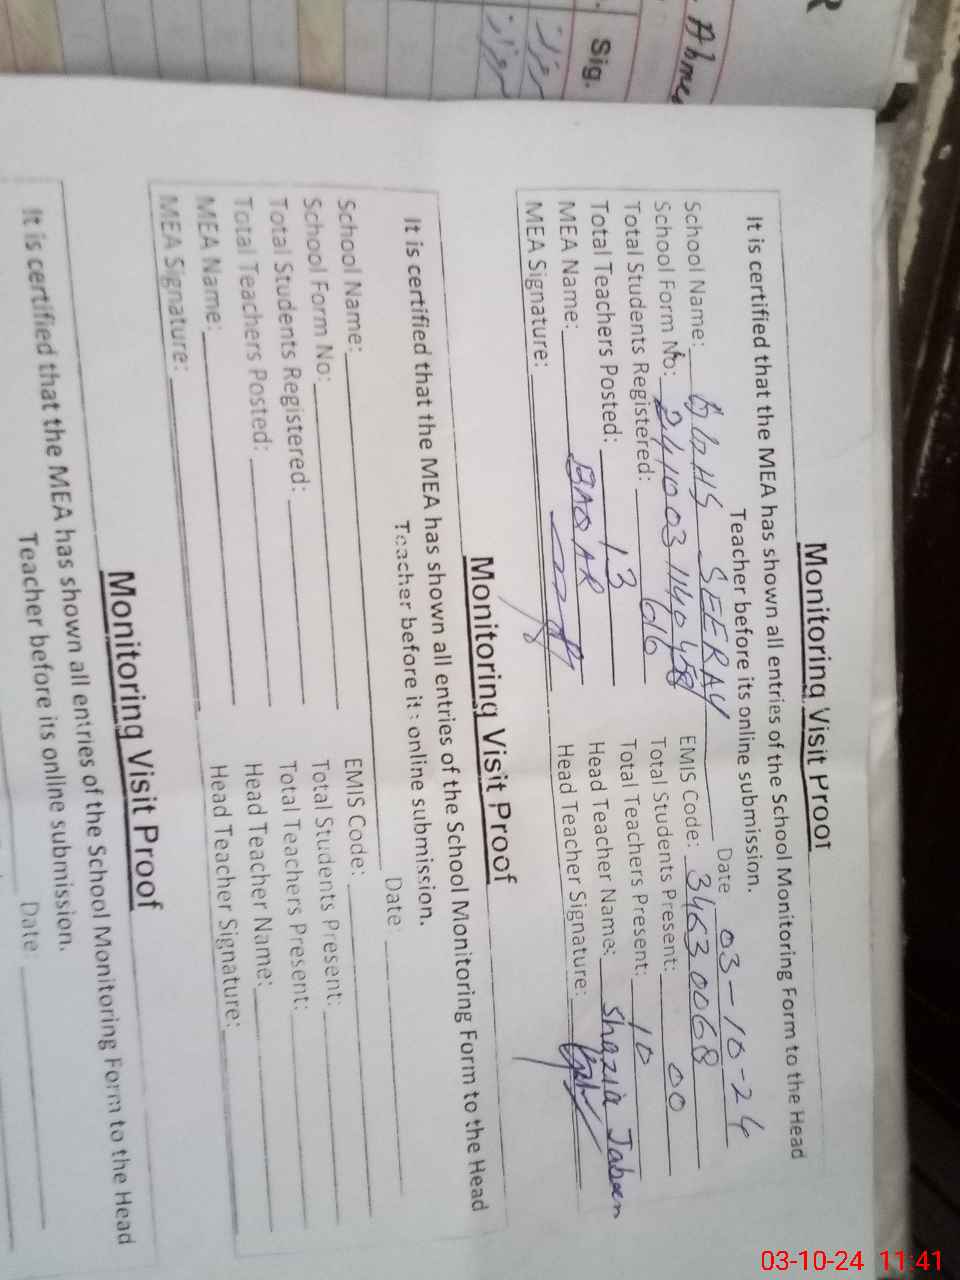 Sig.
Monitoring Visit Proof
It is certified that the MEA has shown all entries of the School Monitoring Form to the Head
Teacher before its online submission.
Date 03-10-24
School Name: GGHS SEERAY
School Form No: EMIS Code: 34630068
Total Students Registered: 616 Total Students Present: 00
Total Teachers Posted: 13 Total Teachers Present: 10
MEA Name: Head Teacher Name: Shazia Jabeen
MEA Signature: Head Teacher Signature:
Monitoring Visit Proof
It is certified that the MEA has shown all entries of the School Monitoring Form to the Head
Teacher before its online submission.
Date:
School Name: EMIS Code:
School Form No: Total Students Present:
Total Students Registered: Total Teachers Present:
Total Teachers Posted: Head Teacher Name:
MEA Name: Head Teacher Signature:
MEA Signature:
Monitoring Visit Proof
It is certified that the MEA has shown all entries of the School Monitoring Form to the Head
Teacher before its online submission.
Date:
03-10-24 11:41